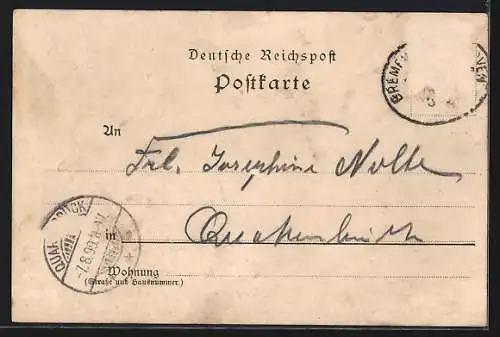 Deutsche Reichspost
Postkarte
BREMEN
An
Frl. Josephine Nolte
QUAK BRÜCK
7.8.99.8-9V.
in
Quakenbrück
Wohnung
(Straße und Hausnummer.)